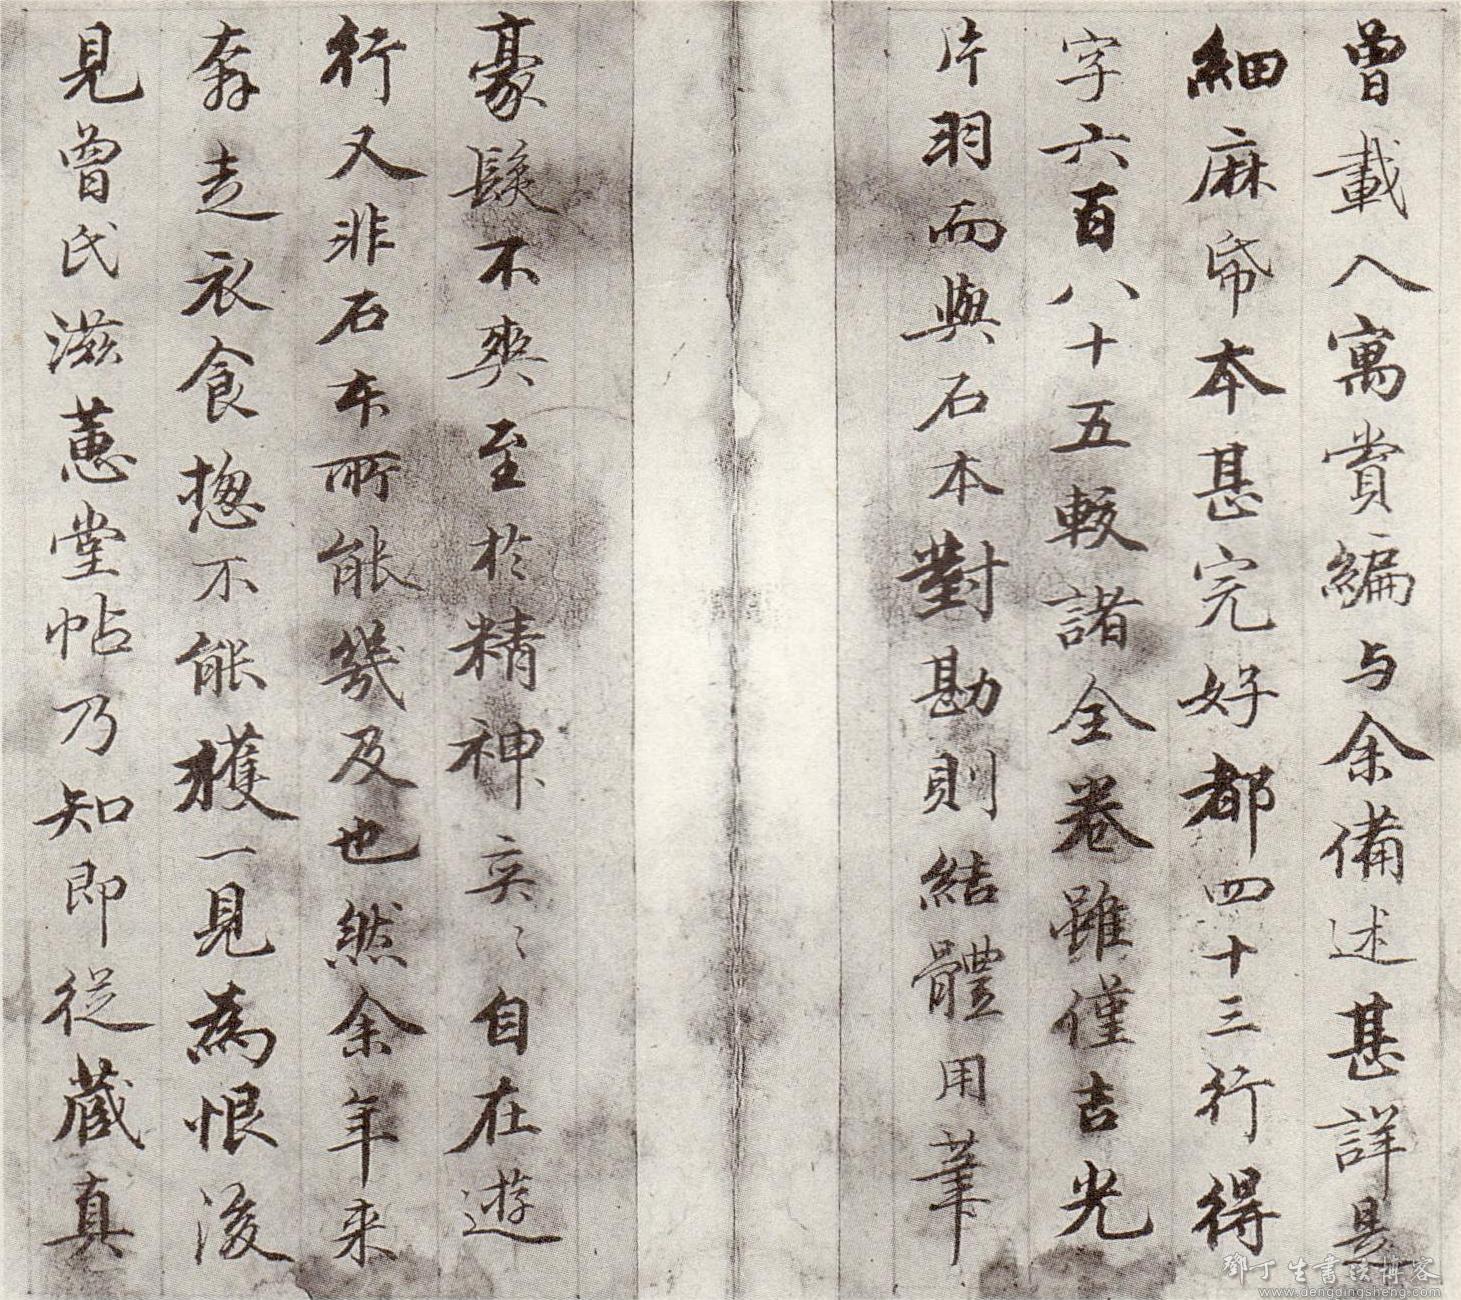 曾載入寓賞編与余備述甚詳是
細麻帋本甚完好都四十三行得
字六百八十五較諸全卷雖僅吉光
片羽而與石本對勘則結體用筆
豪髮不爽至於精神奕〻自在遊
行又非石本所能幾及也然余年来
奔走衣食揔不能獲一見為恨後
見曾氏滋蕙堂帖乃知即從蔵真
鄧丁生書法博客
www.dengdingsheng.com